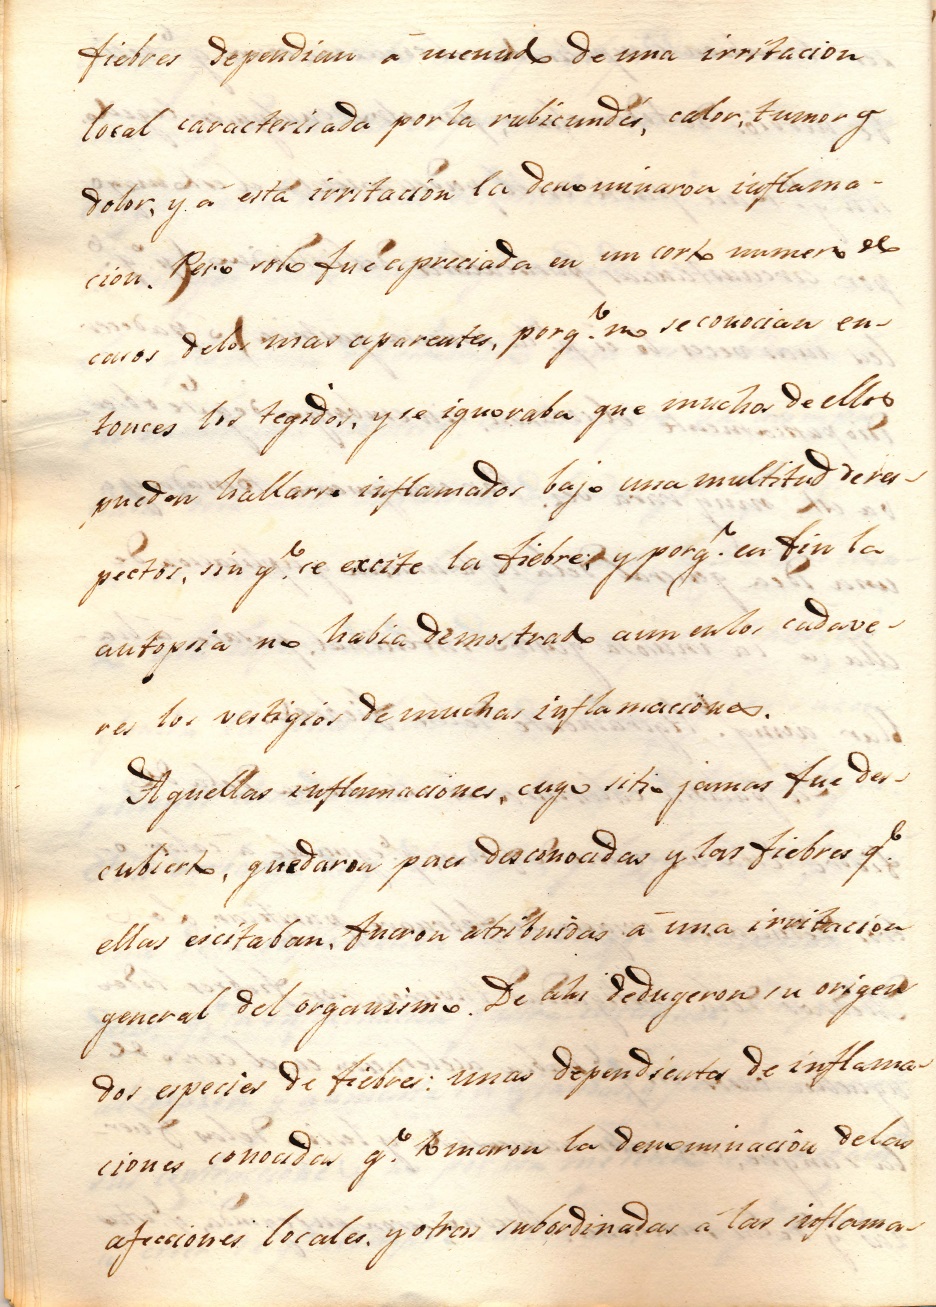 fiebres dependian á menudo de una irritacion
local caracterisada por la rubicundés, calor, tumor y
dolor, y á esta irritacion la denominaron inflama-
cion. Pero solo fue apreciada en un corto numero de
casos delos mas aparentes, porq.e no se conocian en-
tonces los tegidos, y se ignoraba que muchos de ellos
pueden hallarse inflamados bajo una multitud de res-
pectos, sin q.e se excite la fiebre; y porq.e en fin la
autopsia no habia demostrado aun en los cadave-
res los vestigios de muchas inflamaciones.
Aquellas inflamaciones, cuyo sitio jamas fue des-
cubierto, quedaron pues desconocidas y las fiebres q.e
ellas escitaban, fueron atribuidas á una irritacion
general del organismo. De ahi dedugeron su origen
dos especies de fiebres: unas dependientes de inflama-
ciones conocidas q.e tomaron la denominación delas
afecciones locales, y otras subordinadas á las inflama-